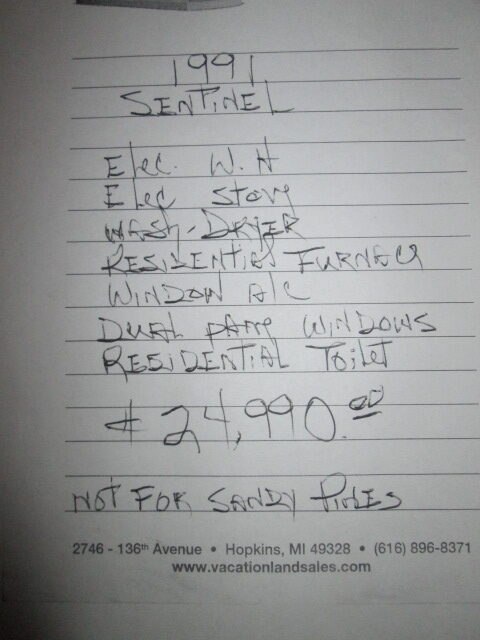 1991
SENTINEL
Elec. W.H
Elec Stove
WASH-DRYER
RESIDENTIAL FURNACE
WINDOW A/C
DUAL PANE WINDOWS
RESIDENTIAL Toilet
$ 24,990.00
NOT FOR SANDY PINES
2746 - 136th Avenue • Hopkins, MI 49328 • (616) 896-8371
www.vacationlandsales.com